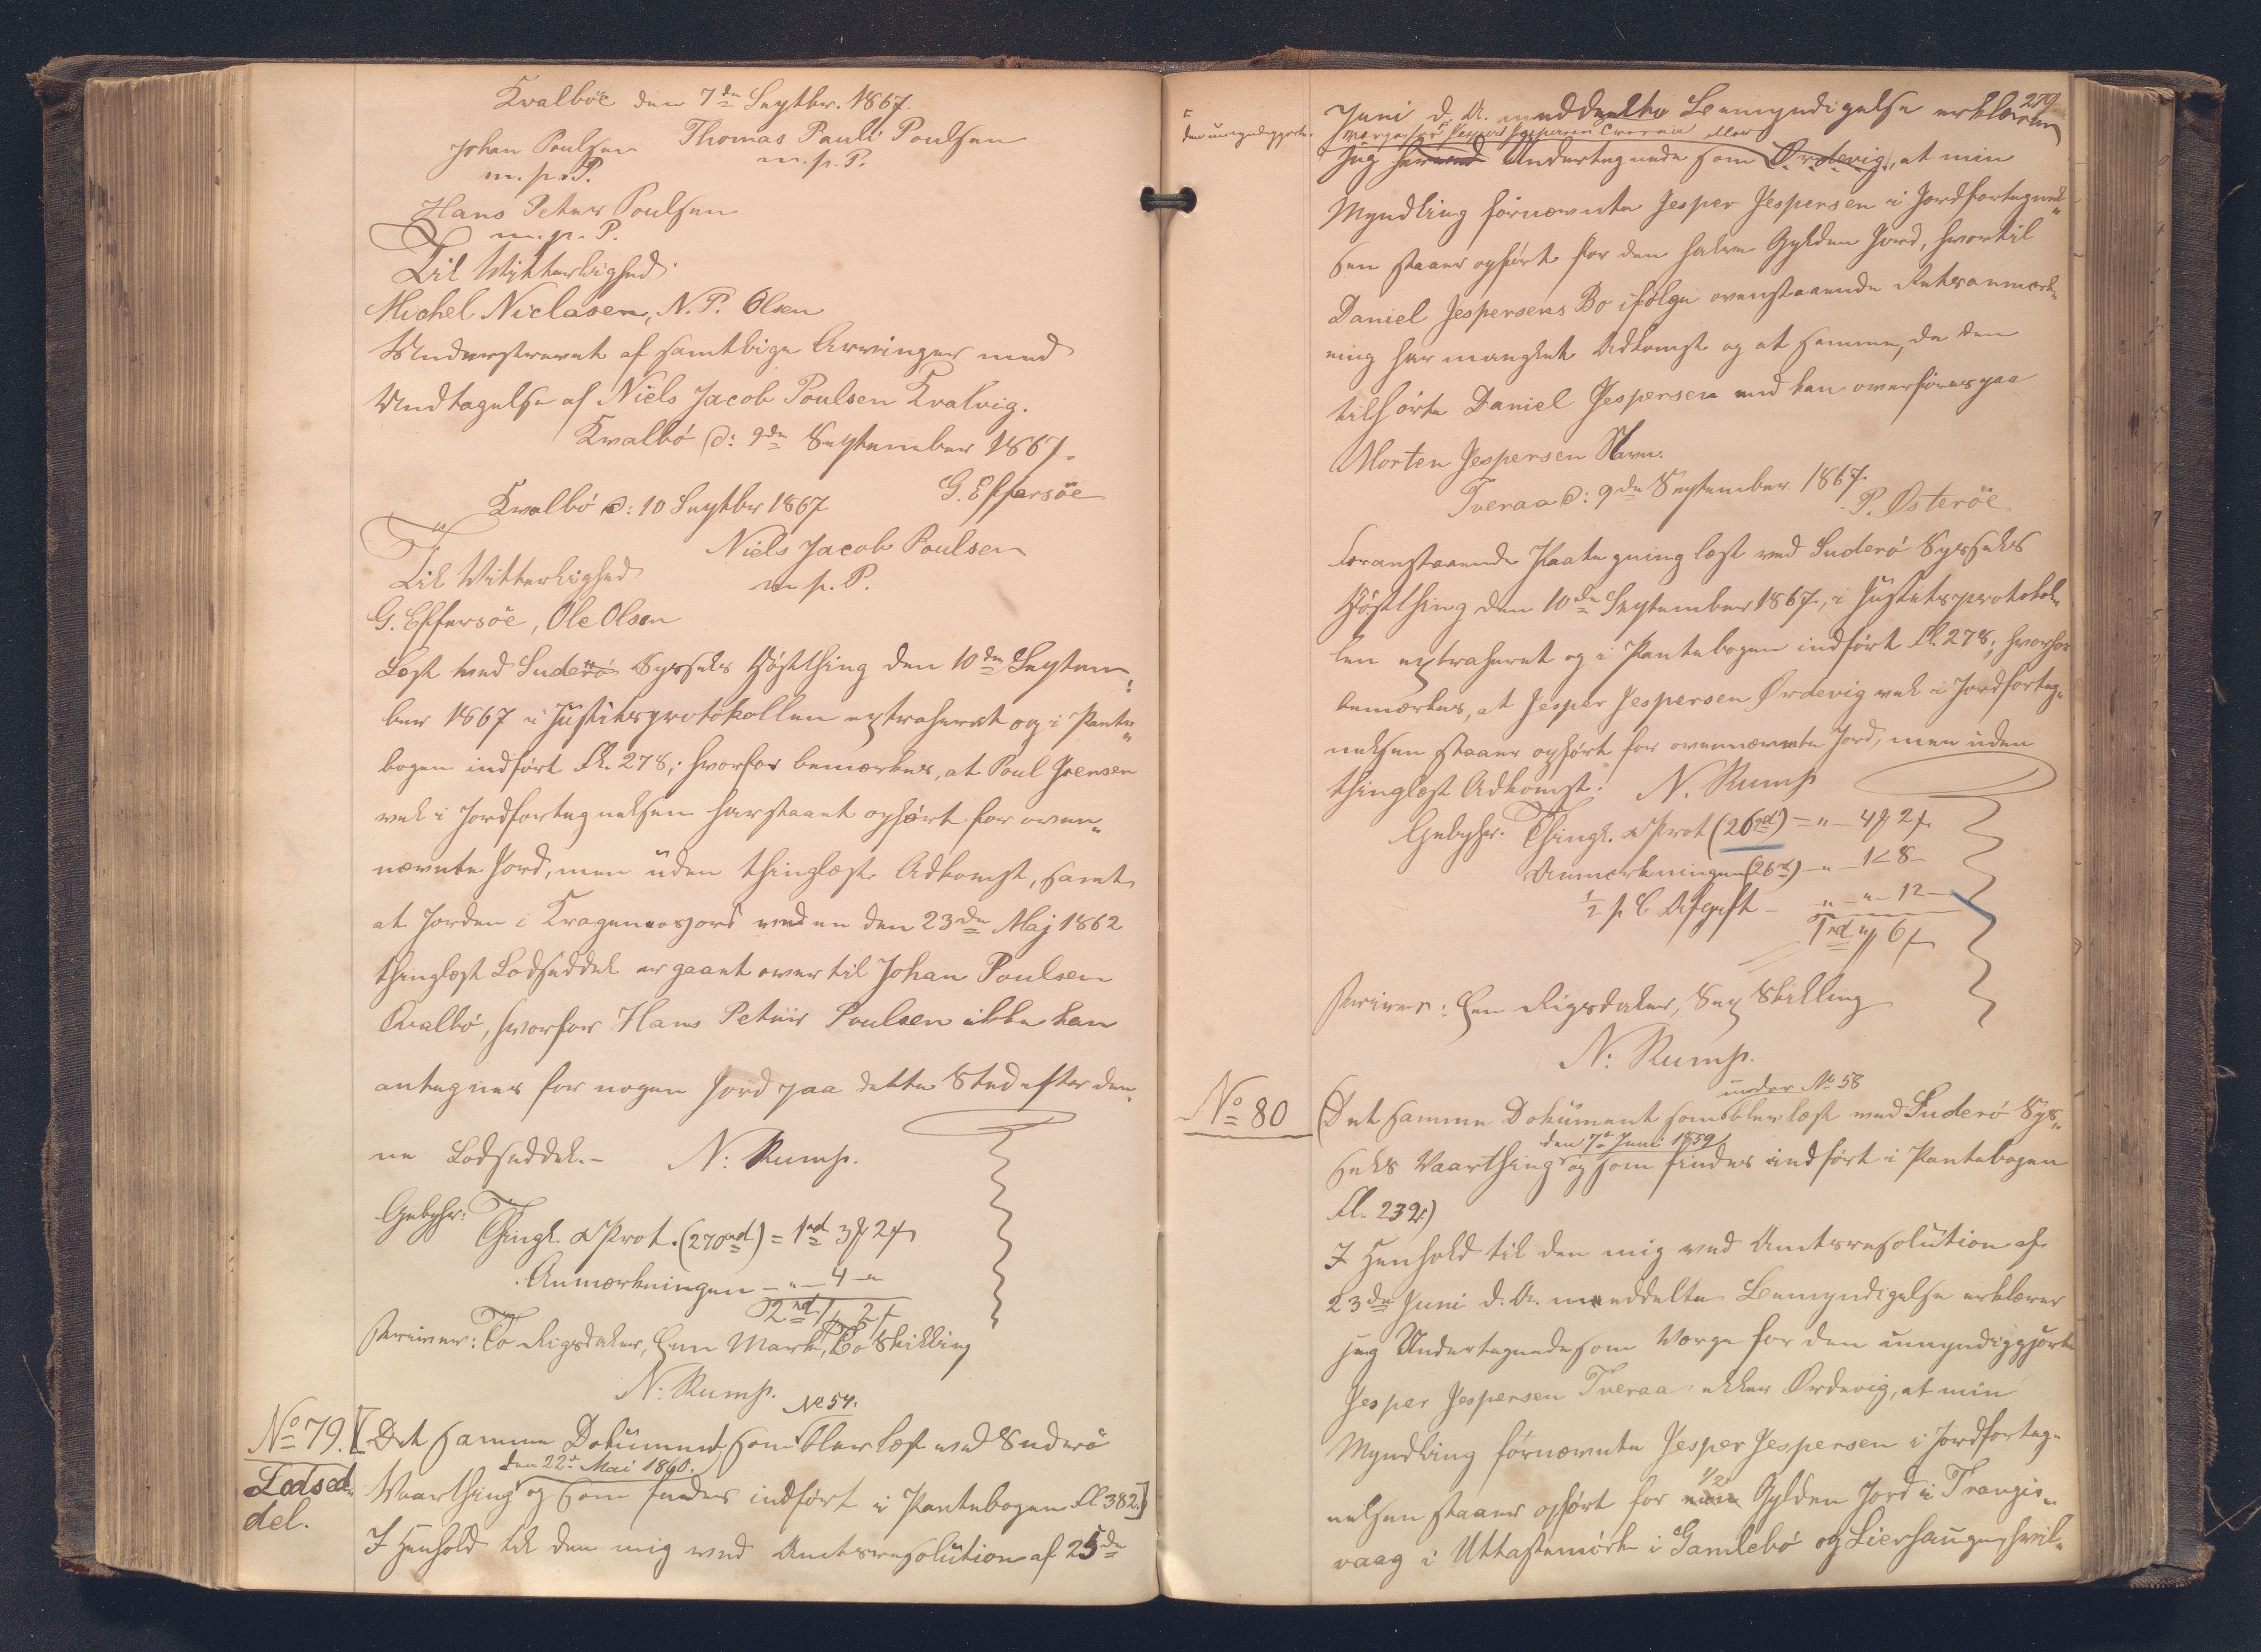 Kvalböe den 7de Septbr. 1867.
Johan Poulsen Thomas Pauli Poulsen
m. p. P. m. p. P.
Hans Peter Poulsen
m. p. P.
Til Vitterlighed
Michel Niclasen, N. P. Olsen
Underskrevet af samtlige Arvinger med
Undtagelse af Niels Jacob Poulsen Kvalvig.
Kvalbö d: 9de September 1867.
G. Effersöe
Kvalbö d: 10 Septbr 1867
Niels Jacob Poulsen
m. p. P.
Til Vitterlighed
G. Effersöe, Ole Olsen
Læst ved Suderö Syssels Höstthing den 10de Septem-
ber 1867 i Justitsprotokollen extraheret og i Pante-
bogen indfört Fl. 278; hvorfor bemærkes, at Poul Joensen
vel i Jordfortegnelsen har staaet opfört for oven-
nævnte Jord, men uden thinglæst Adkomst, samt
at Jorden i ved en den 23de Maj 1862
thinglæst Lodseddel er gaaet over til Johan Poulsen
Qvalbö, hvorfor Hans Petur Poulsen ikke kan
antegnes for nogen Jord paa dette Sted efter den-
ne Lodseddel.- N: Rump.
Gebyhr:
Thingl. & Prot. (270rd) = 1rd 3 2
Anmærkningen - " - 4 "
2rd 1 2
skriver: To Rigsdaler, Een Mark, To Skilling
N: Rump.
No 57.
No 79. [Det samme Dokument som blev læst ved Suderö
Lodsed-
del.
den 22d Mai 1860.
Vaarthing og som findes indfört i Pantebogen Fl 382.]
I Henhold til den mig ved Amtsresolution af 25de
279
Juni d. A. meddeelte Bemyndigelse erklærer
den umyndiggjorte
Værge for Jesper Jespersen Tveraa eller
jeg herved Undertegnede som Ördevig, at min
Myndling fornævnte Jesper Jespersen i Jordfortegnel-
sen staaer opfört for den halve Gylden Jord, hvortil
Daniel Jespersens Bo ifölge ovenstaaende Retsanmærk-
ning har manglet Adkomst og at samme, da den
tilhörte Daniel Jespersen med kan overföres paa
Morten Jespersen Navn.
Tveraa d: 9de September 1867.
P. Österöe
Foranstaaende Paategning læst ved Suderö Syssels
Höstthing den 10de September 1867, i Justitsprotokol-
len extraheret og i Pantebogen indfört Fl. 278; hvorhos
bemærkes, at Jesper Jespersen Ördevig vel i Jordforteg-
nelsen staaer opfört for ovennævnte Jord, men uden
thinglæst Adkomst. N. Rump
Gebyhr. Thingl. & Prot (26rd) = " - 4 2
Anmærkningen (26rd) - " - 1 " 8 -
1/2 p C Afgift - " - " - 12 -
1rd " 6
skriver: Een Rigsdaler, Sex Skilling
N: Rump.
under No 58
No 80 (Det samme Dokument som blev læst ved Suderö Sys-
den 7d Juni 1859
sels Vaarthing og som findes indfört i Pantebogen
Fl. 232.)
I Henhold til den mig ved Amtsresolution af
23de Juni d. A. meddelte Bemyndigelse erklærer
jeg Undertegnede som Værge for den umyndiggjorte
Jesper Jespersen Tveraa eller Ördevig, at min
Myndling fornævnte Jesper Jespersen i Jordforteg-
1/2
nelsen staaer opfört for Gylden Jord i Trangis-
vaag i Uttastemörk i Gamlebö og Lierhauge, hvil-